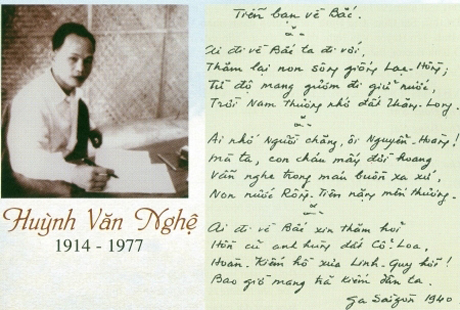 Huỳnh Văn Nghệ
1914 - 1977
Tiễn bạn về Bắc.
Ai đi về Bắc ta đi với,
Thăm lại non sông giống Lạc-Hồng;
Từ độ mang gươm đi giữ nước,
Trời Nam thương nhớ đất Thăng-Long.
Ai nhớ Người chăng, ôi Nguyễn-Hoàng!
Mà ta, con cháu mấy đời hoang
Vẫn nghe trong máu buồn xa xứ,
Non nước Rồng-Tiên nặng mến thương.
Ai đi về Bắc xin thăm hỏi
Hồn cũ anh hùng đất Cổ-Loa,
Hoàn-Kiếm hồ xưa Linh-Quy hỡi!
Bao giờ mang trả kiếm dân ta.
Ga Saigon 1940